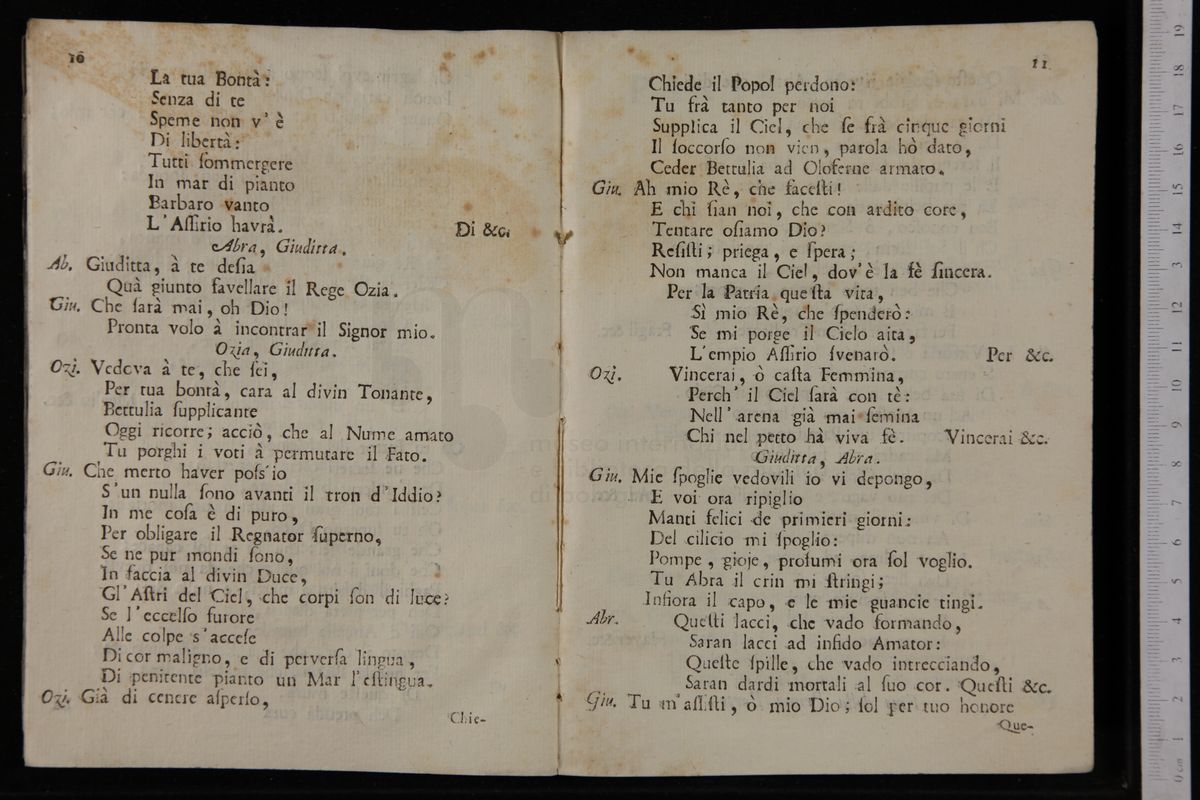 10
La tua Bontà:
Senza di te
Speme non v' è
Di libertà:
Tutti ſommergere
In mar di pianto
Barbaro vanto
L' Aſſirio havrà. Di &c.
Abra, Giuditta.
Ab. Giuditta, à te deſia
Quà giunto favellare il Rege Ozia.
Giu. Che ſarà mai, oh Dio!
Pronta volo à incontrar il Signor mio.
Ozia, Giuditta.
Ozi. Vedova à te, che ſei,
Per tua bontà, cara al divin Tonante,
Bettulia ſupplicante
Oggi ricorre; acciò, che al Nume amato
Tu porghi i voti à permutare il Fato.
Giu. Che merto haver poſs'io
S'un nulla ſono avanti il tron d'Iddio?
In me coſa è di puro,
Per obligare il Regnator ſuperno,
Se ne pur mondi ſono,
In faccia al divin Duce,
Gl' Aſtri del Ciel, che corpi ſon di luce?
Se l'ecceſſo furore
Alle colpe s'acceſe
Di cor maligno, e di perverſa lingua,
Di penitente pianto un Mar l'eſtingua.
Ozi. Già di cenere aſperſo,
Chie-
11
Chiede il Popol perdono:
Tu frà tanto per noi
Supplica il Ciel, che ſe frà cinque giorni
Il ſoccorſo non vien, parola hò dato,
Ceder Bettulia ad Oloferne armato.
Giu. Ah mio Rè, che faceſti!
E chi ſian noi, che con ardito core,
Tentare oſiamo Dio?
Reſiſti; priega, e ſpera;
Non manca il Ciel, dov'è la fè ſincera.
Per la Patria queſta vita,
Sì mio Rè, che ſpenderò:
Se mi porge il Cielo aita,
L'empio Aſſirio ſvenarò. Per &c.
Ozi. Vincerai, ò caſta Femmina,
Perch' il Ciel ſarà con tè:
Nell' arena già mai ſemina
Chi nel petto hà viva fè. Vincerai &c.
Giuditta, Abra.
Giu. Mie ſpoglie vedovili io vi depongo,
E voi ora ripiglio
Manti felici de primieri giorni:
Del cilicio mi ſpoglio:
Pompe, gioje, profumi ora ſol voglio.
Tu Abra il crin mi ſtringi;
Infiora il capo, e le mie guancie tingi.
Abr. Queſti lacci, che vado formando,
Saran lacci ad infido Amator:
Queſte ſpille, che vado intrecciando,
Saran dardi mortali al ſuo cor. Queſti &c.
Giu. Tu m'aſſiſti, ò mio Dio; ſol per tuo honore
Que-